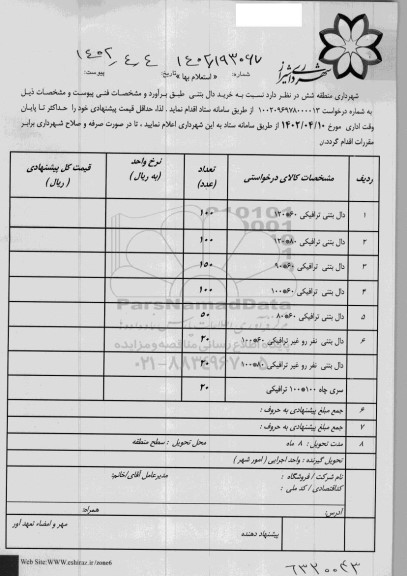 شهرداری شیراز
شماره: ۱۴۰۲/۹۳۰۶۷ تاریخ: ۱۴۰۲/۴/۴ پیوست:
« استعلام بها »
شهرداری منطقه شش در نظر دارد نسبت به خرید دال بتنی طبق برآورد و مشخصات فنی پیوست و مشخصات ذیل
به شماره درخواست ۱۱۰۲۰۹۶۹۷۸۰۰۰۰۱۳ از طریق سامانه ستاد اقدام نماید . لذا، حداقل قیمت پیشنهادی خود را حداکثر تا پایان
وقت اداری مورخ ۱۴۰۲/۰۴/۱۰ از طریق سامانه ستاد به این شهرداری اعلام نمایید ، تا در صورت صرفه و صلاح شهرداری برابر
مقررات اقدام گردد.
ردیف مشخصات کالای درخواستی تعداد (عدد) نرخ واحد (به ریال ) قیمت کل پیشنهادی ( ریال )
۱ دال بتنی ترافیکی ۶۰*۱۲۰ ۱۰۰
۲ دال بتنی ترافیکی ۸۰*۱۲۰ ۱۰۰
۳ دال بتنی ترافیکی ۶۰*۹۰ ۱۵۰
۴ دال بتنی ترافیکی ۶۰*۱۰۰ ۱۰۰
۵ دال بتنی ترافیکی ۶۰*۸۰ ۵۰
۶ دال بتنی نفر رو غیر ترافیکی ۶۰*۱۰۰ ۲۰
دال بتنی نفر رو غیر ترافیکی ۸۰*۱۰۰ ۲۰
سری چاه ۱۰۰*۱۰۰ ترافیکی ۲۰
۶ جمع مبلغ پیشنهادی به حروف :
۷ جمع مبلغ پیشنهادی به حروف :
۸ مدت تحویل : ۸ ماه محل تحویل : سطح منطقه
تحویل گیرنده : واحد اجرایی ( امور شهر )
نام شرکت / فروشگاه : مدیرعامل آقای/خانم:
کداقتصادی / کد ملی :
آدرس: همراه:
پیشنهاد دهنده مهر و امضاء تعهد آور
Web Site:WWW.eshiraz.ir/zone6
۶۳۲۰۰۴۳
ParsNamadData
۰۲۱-۸۸۳۴۹۶۷۰